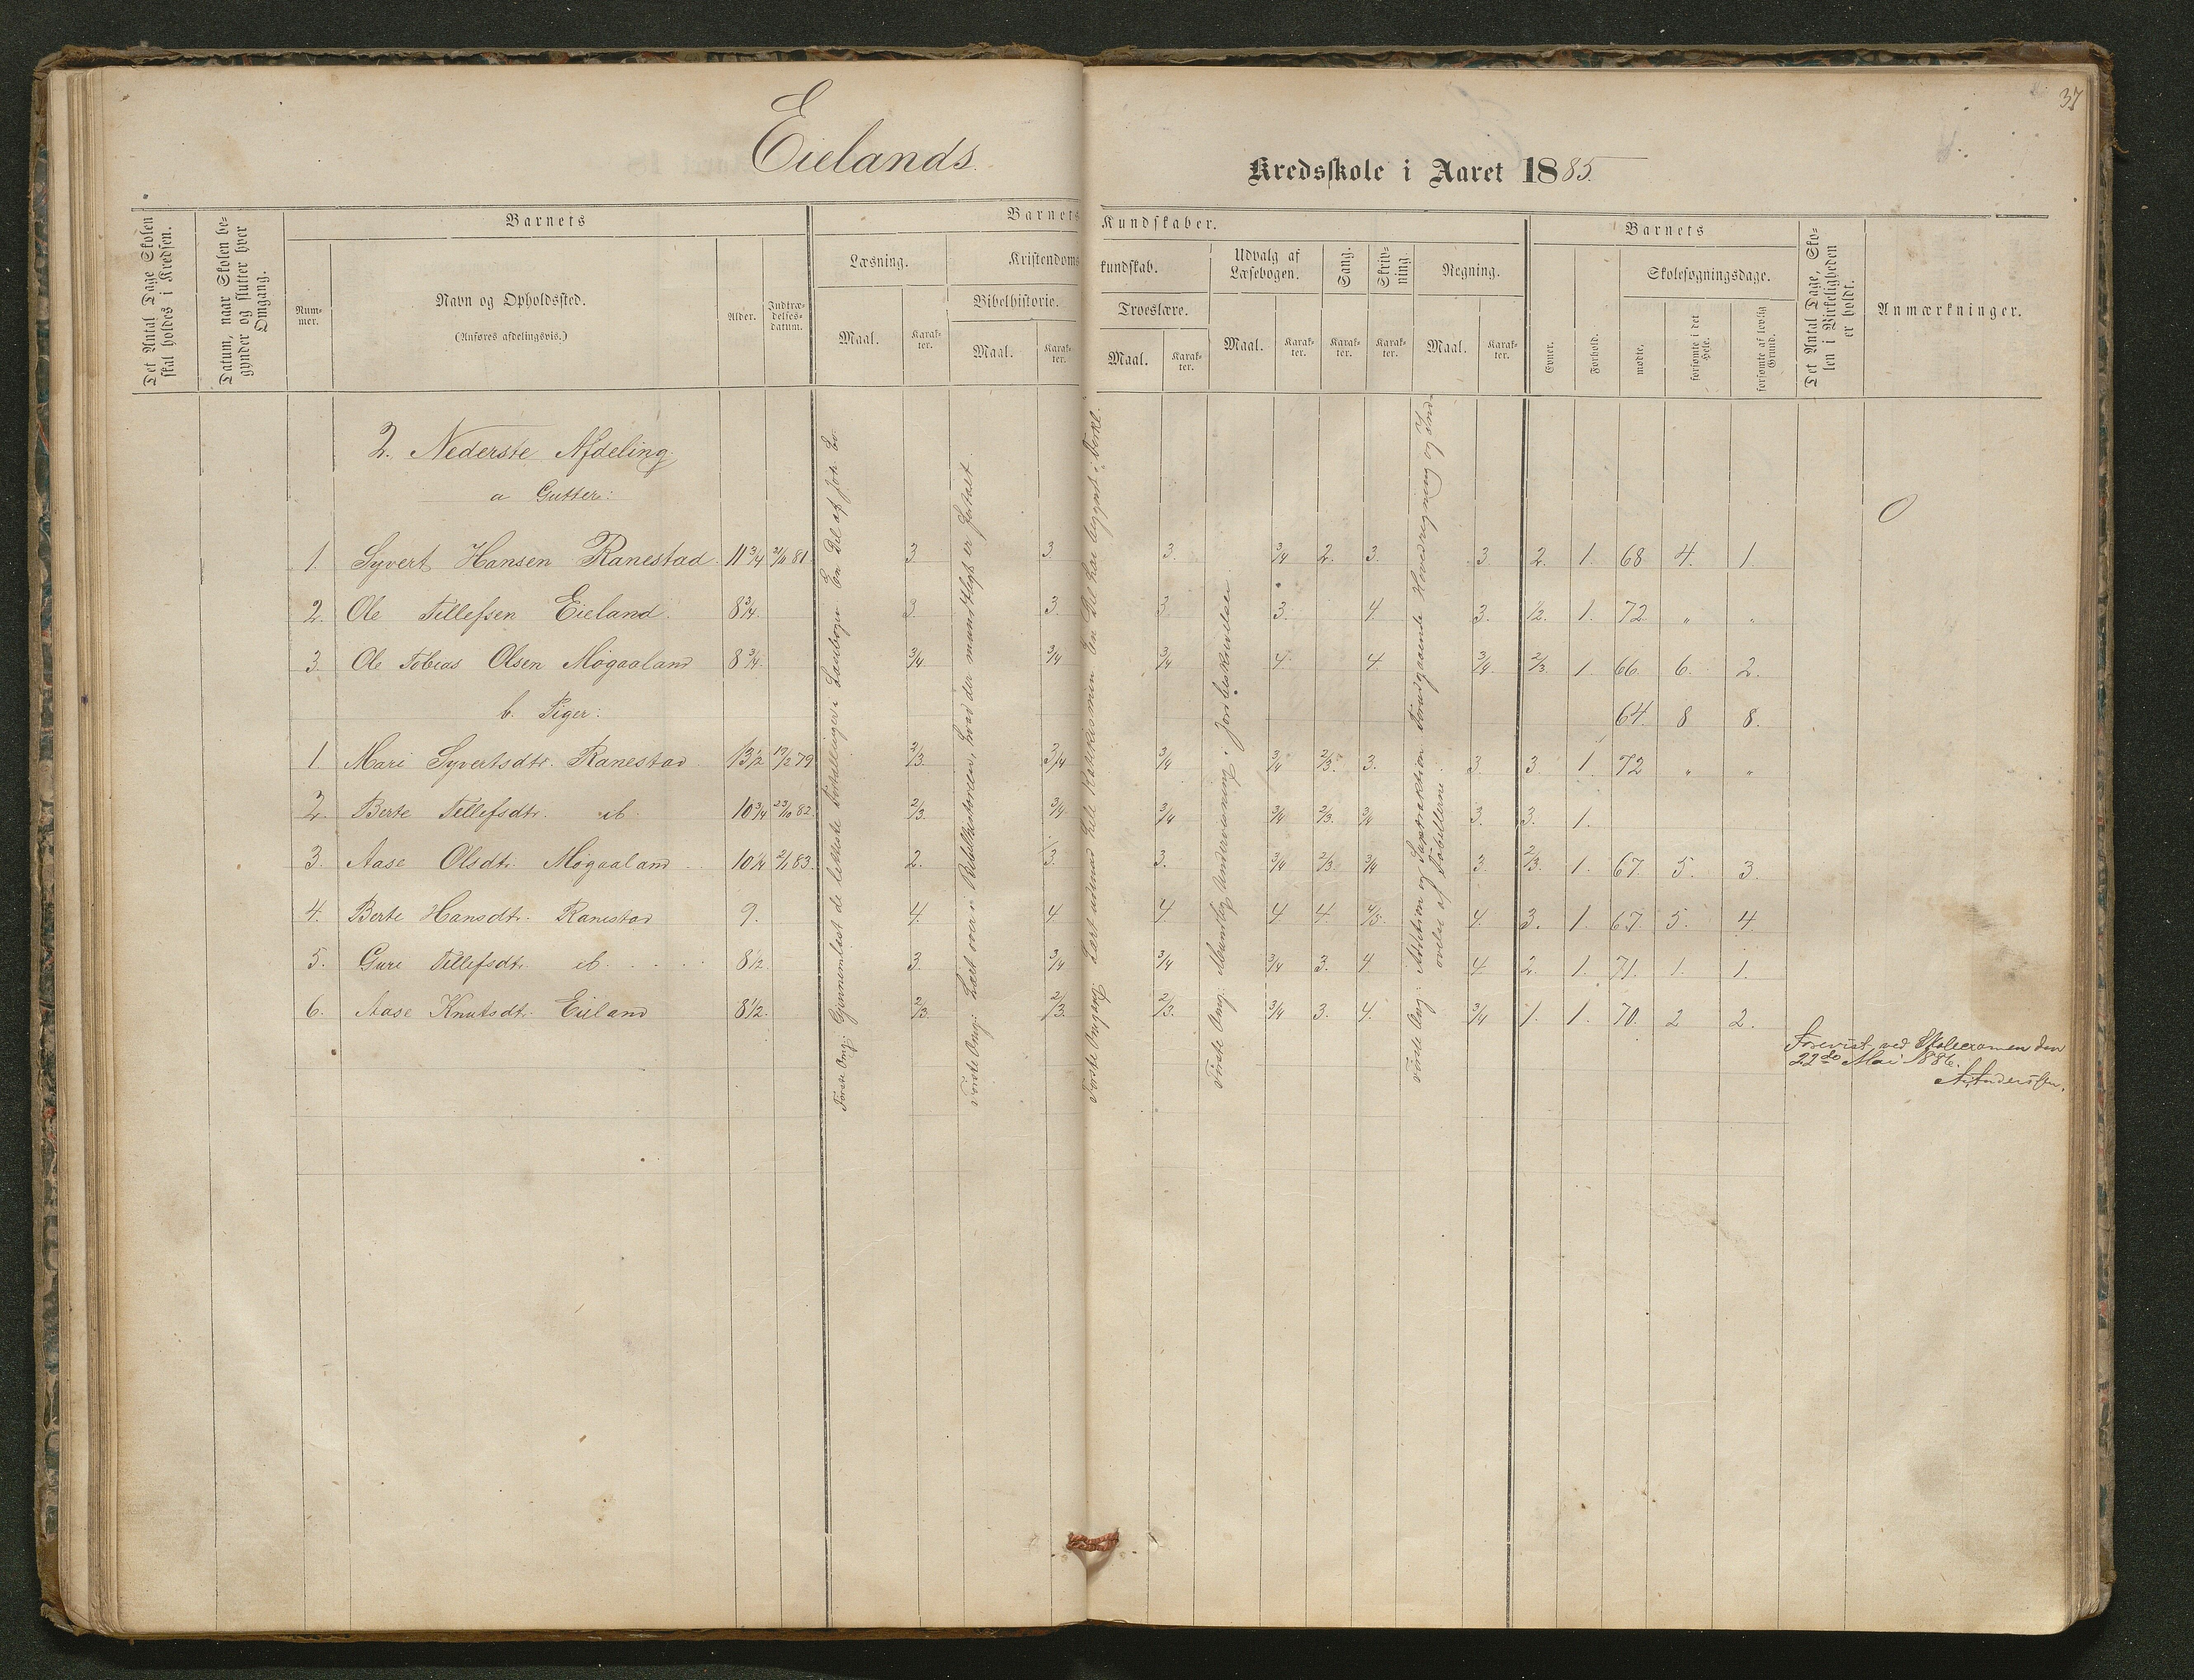 37
Eielands
Kredsskole i Aaret 1885.
Det Antal Dage Skolen skal holdes i Kredsen.
Datum, naar Skolen begynder og slutter hver Omgang.
Barnets
Nummer.
Navn og Opholdssted.
(Anføres afdelingsvis.)
Alder.
Indtrædelses-datum.
Barnets Kundskaber.
Læsning.
Kristendomskundskab.
Udvalg af Læsebogen.
Sang.
Skrivning.
Regning.
Bibelhistorie.
Troeslære.
Maal.
Karakter.
Maal.
Karakter.
Maal.
Karakter.
Maal.
Karakter.
Karakter.
Karakter.
Maal.
Karakter.
Barnets
Evner.
Forhold.
Skolesøgningsdage.
mødte.
forsømte i det Hele.
forsømte af lovlig Grund.
Det Antal Dage, Skolen i Virkeligheden er holdt.
Anmærkninger.
2. Nederste Afdeling
a Gutter:
1. Syvert Hansen Ranestad. 11 3/4 21/11 81 3 3 3. 3/4 2. 3. 3 2. 1. 68 4. 1.
2. Ole Tellefsen Eieland. 8 3/4. 3. 3. 3. 3. 4. 3. 1/2. 1. 72 " "
3. Ole Tobias Olsen Møgaaland 8 3/4. 3/4 3/4 3/4 4. 4. 3/4. 2/3. 1. 66. 6. 2.
b. Piger: 64. 8 8.
1 Mari Syvertsdtr. Ranestad 13 1/2 19/12 79 2/3. 3/4 3/4 3/4 2/3. 3. 3 3. 1. 72 " "
2. Berte Tellefsdtr. ib. 10 3/4 23/10 82. 2/3. 3/4. 3/4 3/4 2/3. 3/4 3. 3. 1.
3. Aase Olsdtr. Møgaaland 10 1/4 2/1 83. 2. 3. 3. 3/4 2/3. 3/4 3. 2/3. 1. 67. 5. 3.
4. Berte Hansdtr. Ranestad 9. 4. 4. 4. 4. 4. 4/5. 4. 3. 1. 67. 5. 4
5. Guri Tellefsdtr. ib. 8 1/2. 3. 3/4 3/4 3/4 3. 4. 4 2. 1. 71. 1. 1.
6. Aase Knutsdtr. Eieland 8 1/2. 2/3. 2/3. 2/3. 3/4 3. 4. 3/4 1. 1. 70. 2 2.
Første Omg.: Gjennemlæst de letteste Fortællinger i Læsebogen En Del af
Første Omg.: Læst over i Bibelhistorien, hvad der mundtligt er fortalt
Første Omgang: Lært udenad hele Katekismen. En Del har begyndt i Forkl.
Første Omg: Mundtlig Undervisning i Jordbeskrivelsen
Første Omg.: Addition og Subtraktion Foregaaende Hovedregning og Ind-
øvelse af Tabellerne.
Forevist ved Skoleexamen den
22de Mai 1886.
A. Anderssen.